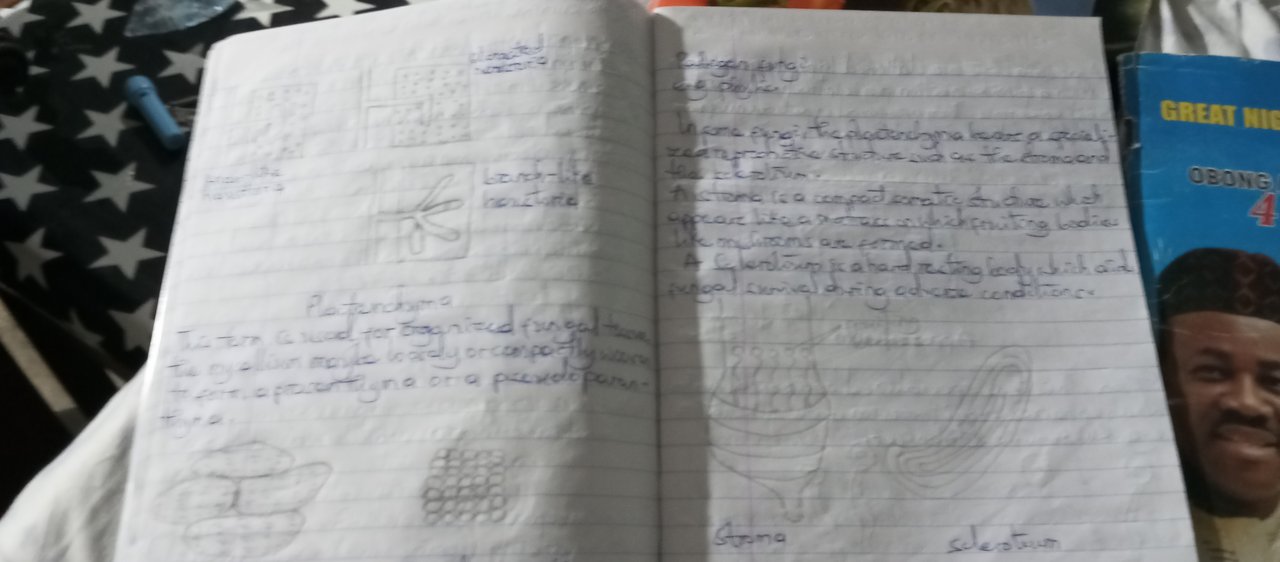 elongated
haustoria
haustoria
branch-like
haustoria
Plectenchyma
This term is used for organized fungal tissue
The mycellium may be loosely or compactly woven
to form a prosenthyma or a pseudoparen-
thyma.
fungi
e.g.
In some fungi the plectenchyma become a speciali-
zed reproductive structure such as the stroma and
the sclerotium.
A stroma is a compact somatic structure which
appears like a mattress on which fruiting bodies
like mushrooms are formed.
A sclerotium is a hard resting body which aid
fungal survival during adverse conditions.
Stroma
sclerotium
GREAT NIG
OBONG
4